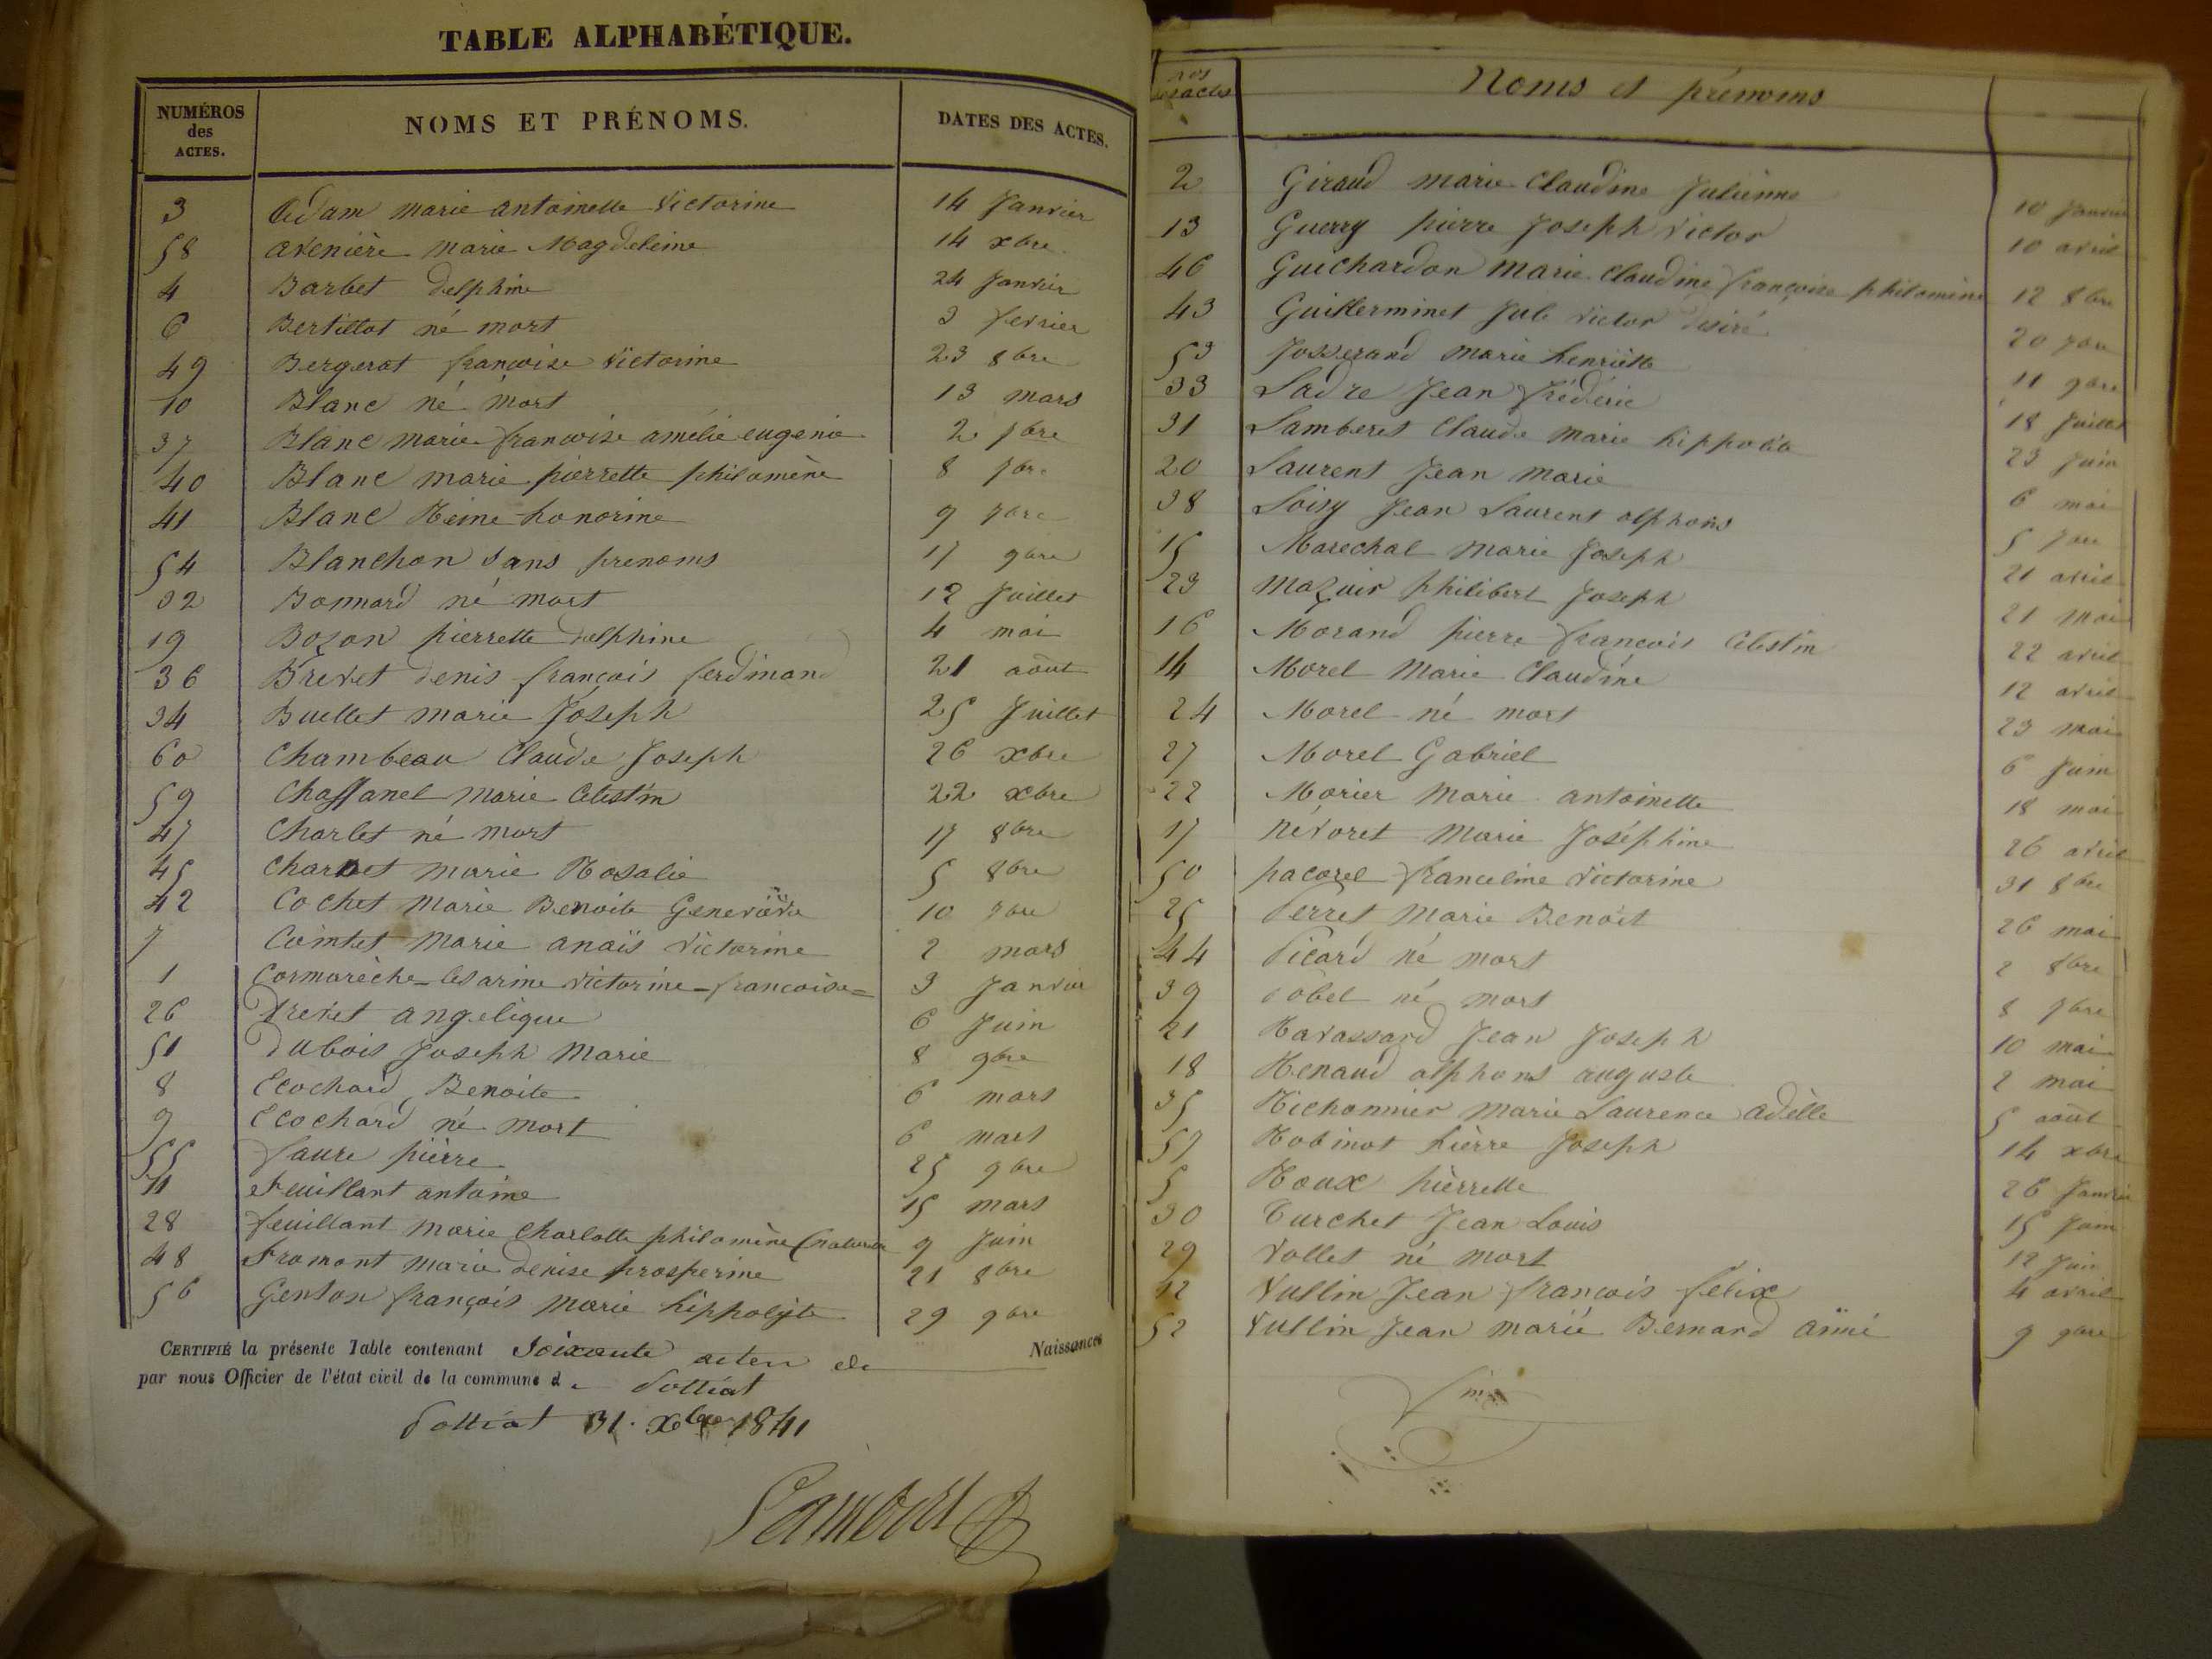 TABLE ALPHABÉTIQUE.
NUMÉROS des ACTES. NOMS ET PRÉNOMS. DATES DES ACTES.
3 Adam marie antoinette Victorine 14 Janvier
58 avenière marie Magdeleine 14 xbre
4 Barbet delphine 24 Janvier
6 Bertillot né mort 3 fevrier
49 Bergerat francoise Victorine 23 8bre
10 Blanc né mort 13 mars
37 Blanc marie francoise amélie eugenie 2 7bre
40 Blanc marie pierrette philomène 8 7bre
41 Blanc Reine honorine 9 7bre
54 Blanchon sans prenoms 17 9bre
32 Bonnard né mort 12 Juillet
19 Bozon pierrette delphine 4 mai
36 Brevet denis françois ferdinand 21 août
34 Buellet marie Joseph 25 Juillet
60 Chambeau Claude Joseph 26 xbre
59 Chaffanel marie Celestin 22 xbre
47 Charlet né mort 17 8bre
45 Charnet marie Rosalie 5 8bre
42 Cochet Marie Benoite Geneviève 10 7bre
7 Cointet Marie anaïs Victorine 2 mars
1 Cormarèche Cesarine Victorine francoise 3 Janvier
26 Drevet angelique 6 Juin
51 Dubois Joseph Marie 8 9bre
8 Ecochard Benoite 6 mars
9 Ecochard né mort 6 mars
55 faure pierre 25 9bre
11 feuillant antoine 15 mars
28 feuillant marie Charlotte philomène (naturelle 9 Juin
48 fromont marie denise prosperine 21 8bre
56 Genton françois marie hippolyte 29 9bre
CERTIFIÉ la présente Table contenant Soixante actes de Naissances
par nous Officier de l'état civil de la commune de Polliat
Polliat 31. xbre 1841
Lambert
nos des actes Noms et prénoms
2 Giraud marie Claudine Julienne 10 Janvier
13 Guerry pierre Joseph Victor 10 avril
46 Guichardon Marie Claudine françoise philomène 12 8bre
43 Guillerminet Jule Victor desiré 20 7bre
53 Josserand marie henriette 11 9bre
33 Ladre Jean frédéric 18 Juillet
31 Lamberet Claude marie hippolite 23 Juin
20 Laurent Jean marie 6 mai
38 Loisy Jean Laurent alphons 5 7bre
15 Marechal marie Joseph 21 avril
23 Mazuir philibert Joseph 21 mai
16 Morand pierre françois Celestin 22 avril
14 Morel Marie Claudine 12 avril
24 Morel né mort 23 mai
27 Morel Gabriel 6 Juin
22 Morier Marie antoinette 18 mai
17 Névoret Marie Joséphine 26 avril
50 pacorel franceline Victorine 31 8bre
25 Perret Marie Benoit 26 mai
44 Picard né mort 2 8bre
39 Pobel né mort 8 7bre
21 Ravassard Jean Joseph 10 mai
18 Renaud alphons auguste 2 mai
35 Richonnier Marie Laurence adèlle 5 août
57 Robinot pierre Joseph 14 xbre
5 Roux pierrette 26 Janvier
30 Turchet Jean Louis 15 Juin
29 Vollet né mort 12 Juin
12 Vullin Jean françois félix 4 avril
52 Vullin Jean marie Bernard aimé 9 9bre
fin